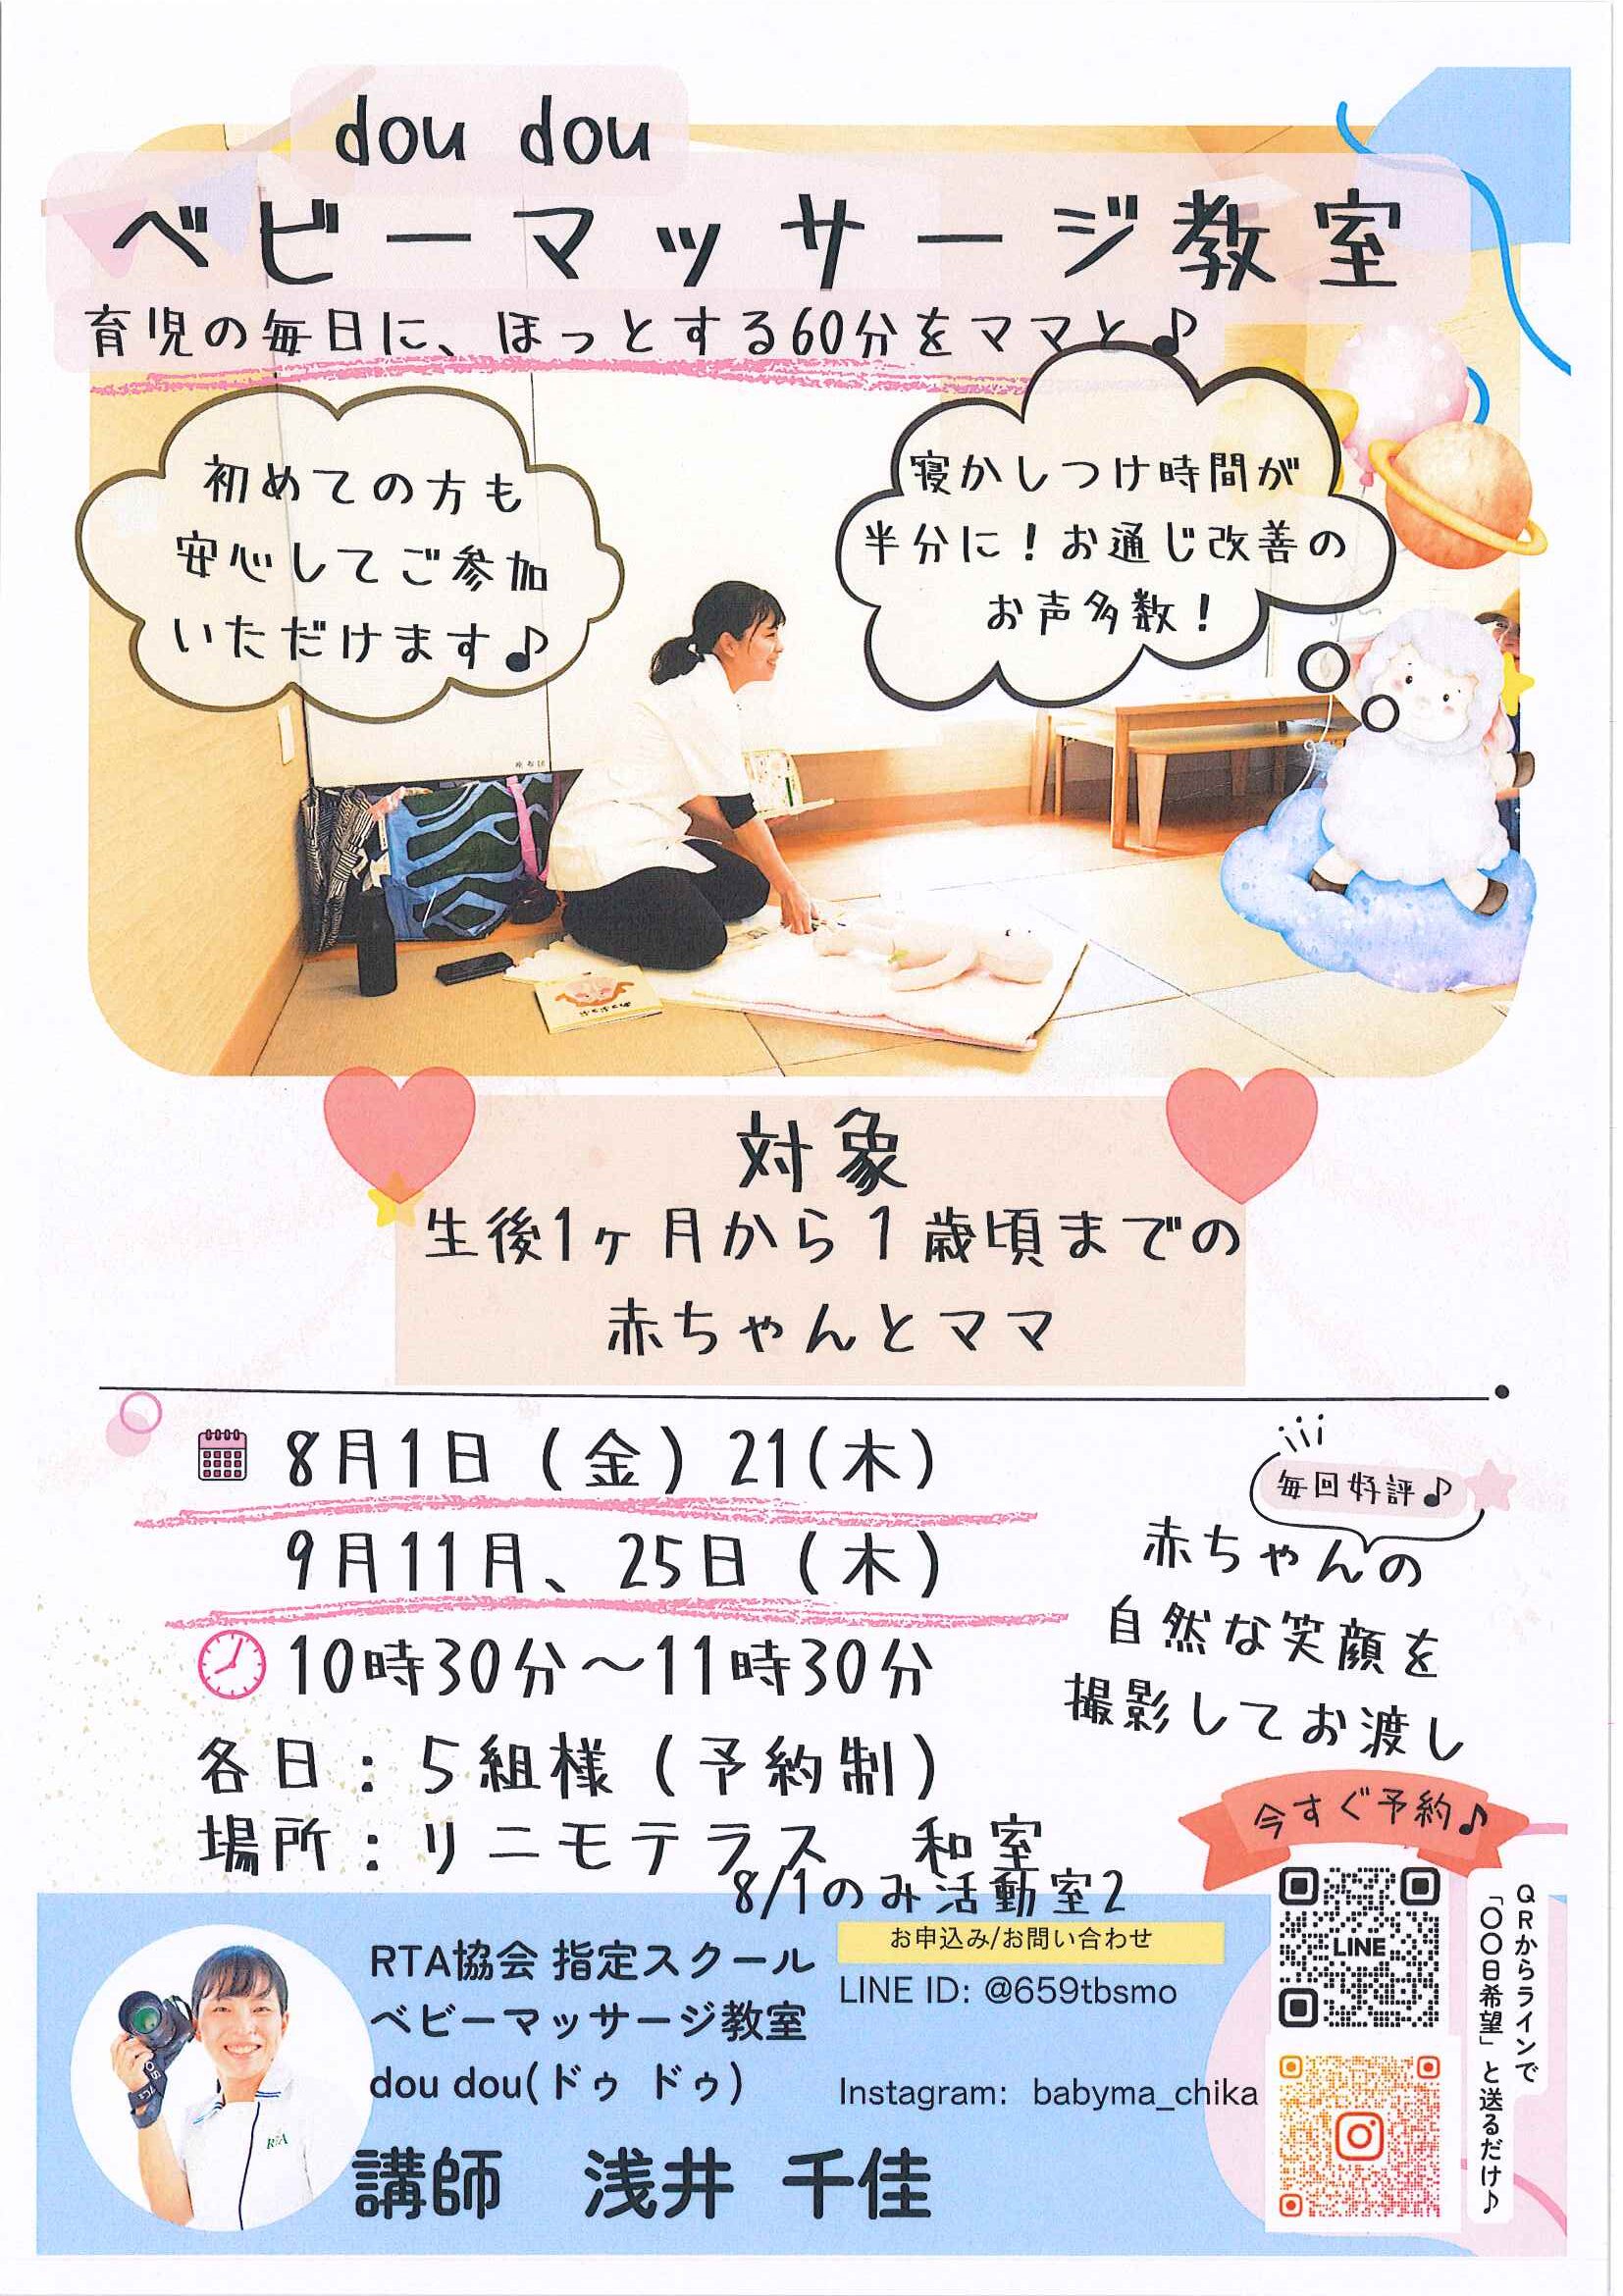 dou dou
ベビーマッサージ教室
育児の毎日に、ほっとする60分をママと♪
初めての方も
安心してご参加
いただけます♪
寝かしつけ時間が
半分に！お通じ改善の
お声多数！
座布団
対象
生後1ヶ月から1歳頃までの
赤ちゃんとママ
8月1日（金）21(木)
9月11月、25日（木）
10時30分～11時30分
各日：5組様（予約制）
場所：リニモテラス　和室
8/1のみ活動室2
毎回好評♪
赤ちゃんの
自然な笑顔を
撮影してお渡し
今すぐ予約♪
RTA協会 指定スクール
ベビーマッサージ教室
dou dou(ドゥ ドゥ)
講師　浅井 千佳
お申込み/お問い合わせ
LINE ID: @659tbsmo
Instagram: babyma_chika
LINE
QRからラインで
「〇〇日希望」と送るだけ♪
RTA